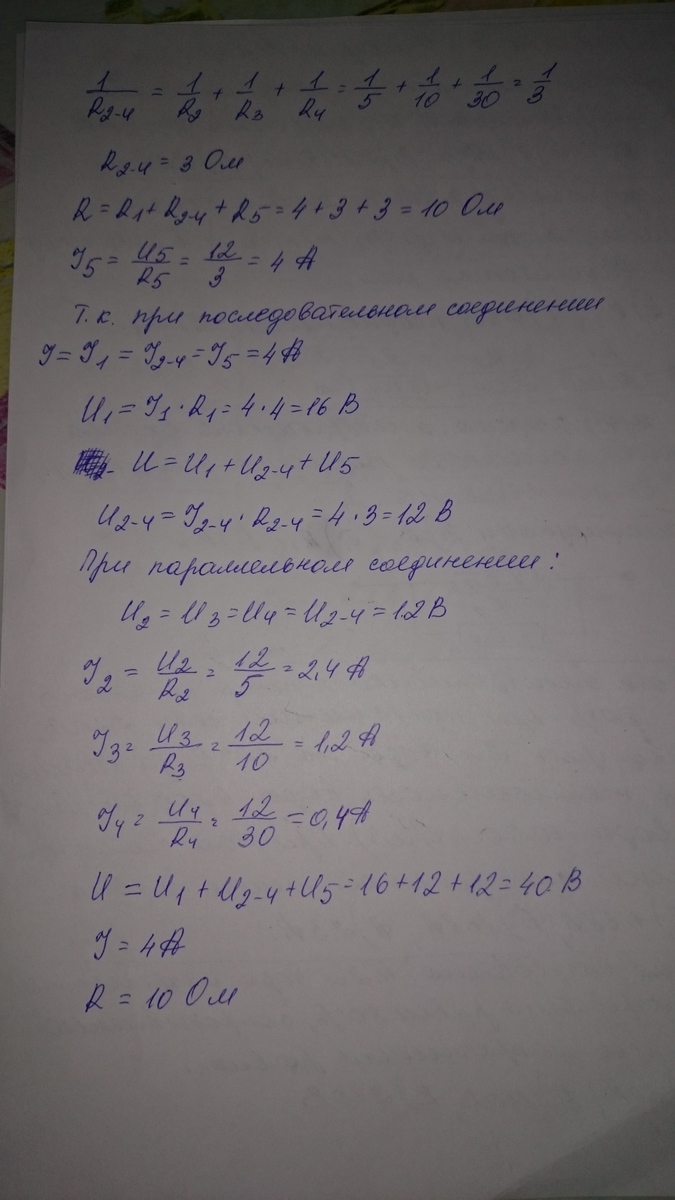 1/R2-4 = 1/R2 + 1/R3 + 1/R4 = 1/5 + 1/10 + 1/30 = 1/3
R2-4 = 3 Ом
R = R1 + R2-4 + R5 = 4 + 3 + 3 = 10 Ом
I5 = U5/R5 = 12/3 = 4 А
Т.к. при последовательном соединении
I = I1 = I2-4 = I5 = 4А
U1 = I1 · R1 = 4 · 4 = 16 В
U = U1 + U2-4 + U5
U2-4 = I2-4 · R2-4 = 4 · 3 = 12 В
При параллельном соединении:
U2 = U3 = U4 = U2-4 = 12 В
I2 = U2/R2 = 12/5 = 2,4 А
I3 = U3/R3 = 12/10 = 1,2 А
I4 = U4/R4 = 12/30 = 0,4А
U = U1 + U2-4 + U5 = 16 + 12 + 12 = 40 В
I = 4А
R = 10 Ом